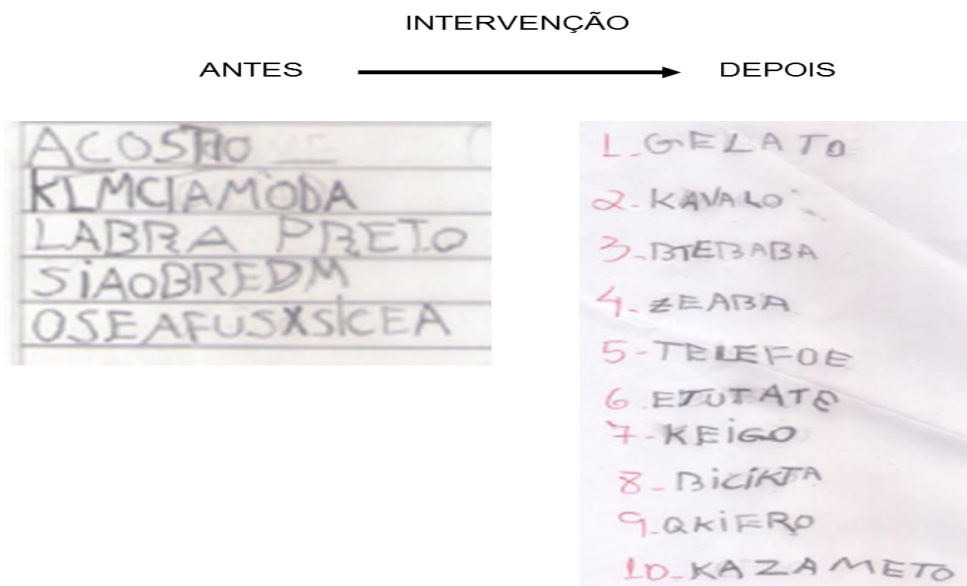 INTERVENÇÃO
ANTES
DEPOIS
ACOSTHO
KLMCIAMODA
LABRA PRETO
SIAOBREDM
OSEAFUSXSKCEA
1-GELATO
2-KAVALO
3-BTEBABA
4-ZEABA
5-TELEFOE
6-ETUTATE
7-KEIGO
8-BICIKTA
9-QKIERO
10-KAZAMETO